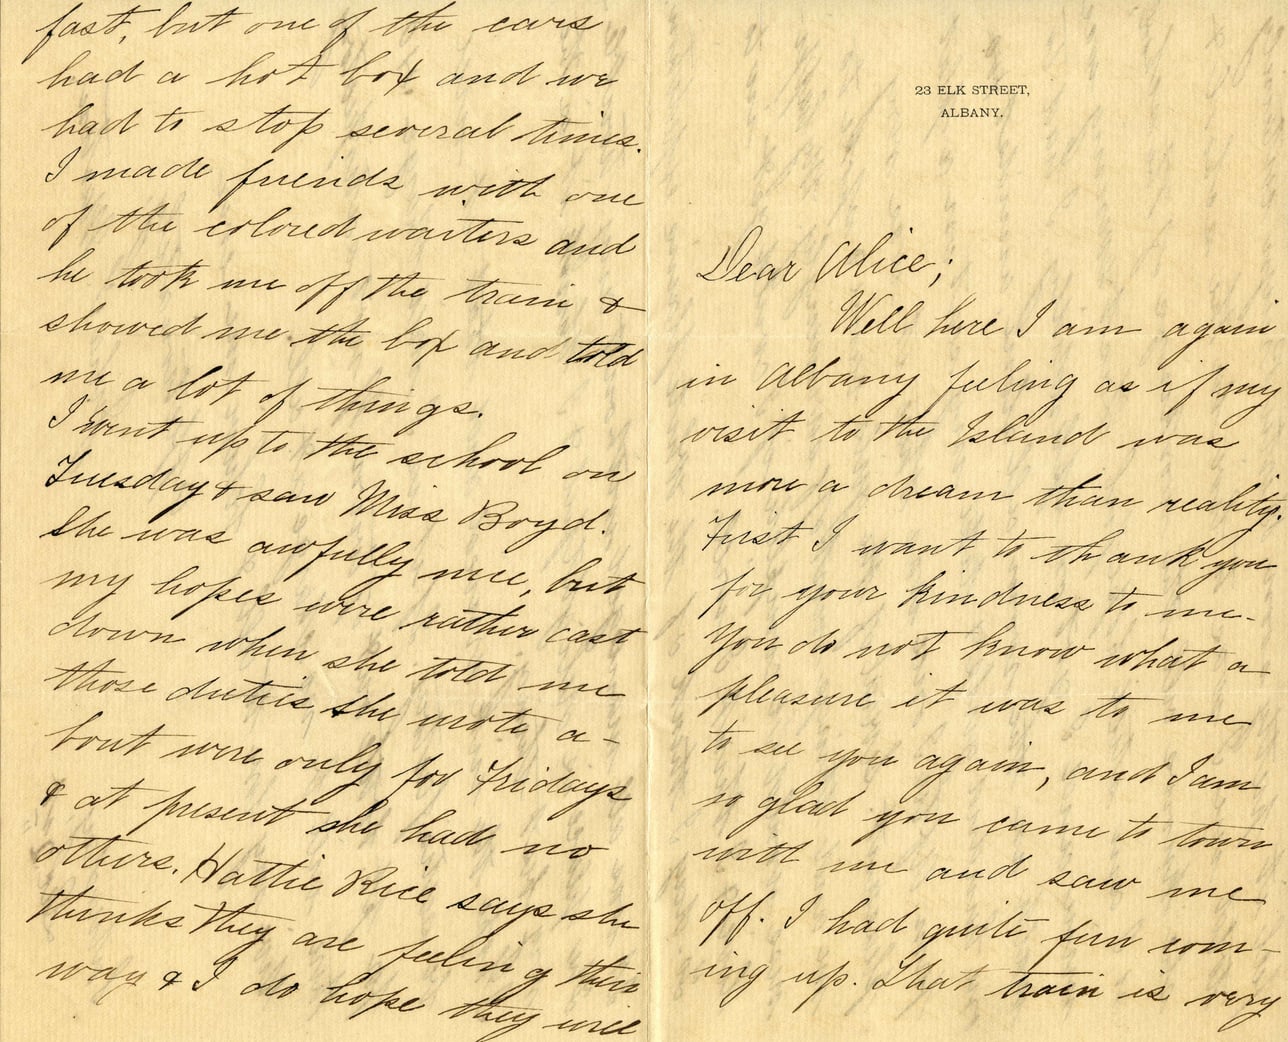 23 ELK STREET,
ALBANY.
Dear Alice;
Well here I am again
in Albany feeling as if my
visit to the Island was
more a dream than reality.
First I want to thank you
for your kindness to me.
You do not know what a
pleasure it was to me
to see you again, and I am
so glad you came to town
with me and saw me
off. I had quite fun com-
ing up. That train is very
fast, but one of the cars
had a hot box and we
had to stop several times.
I made friends with one
of the colored waiters and
he took me off the train &
showed me the box and told
me a lot of things.
I went up to the school on
Tuesday & saw Miss Boyd.
She was awfully nice, but
my hopes were rather cast
down when she told me
those duties she wrote a-
bout were only for Fridays
& at present she had no
others. Hattie Rice says she
thinks they are feeling their
way & I do hope they will